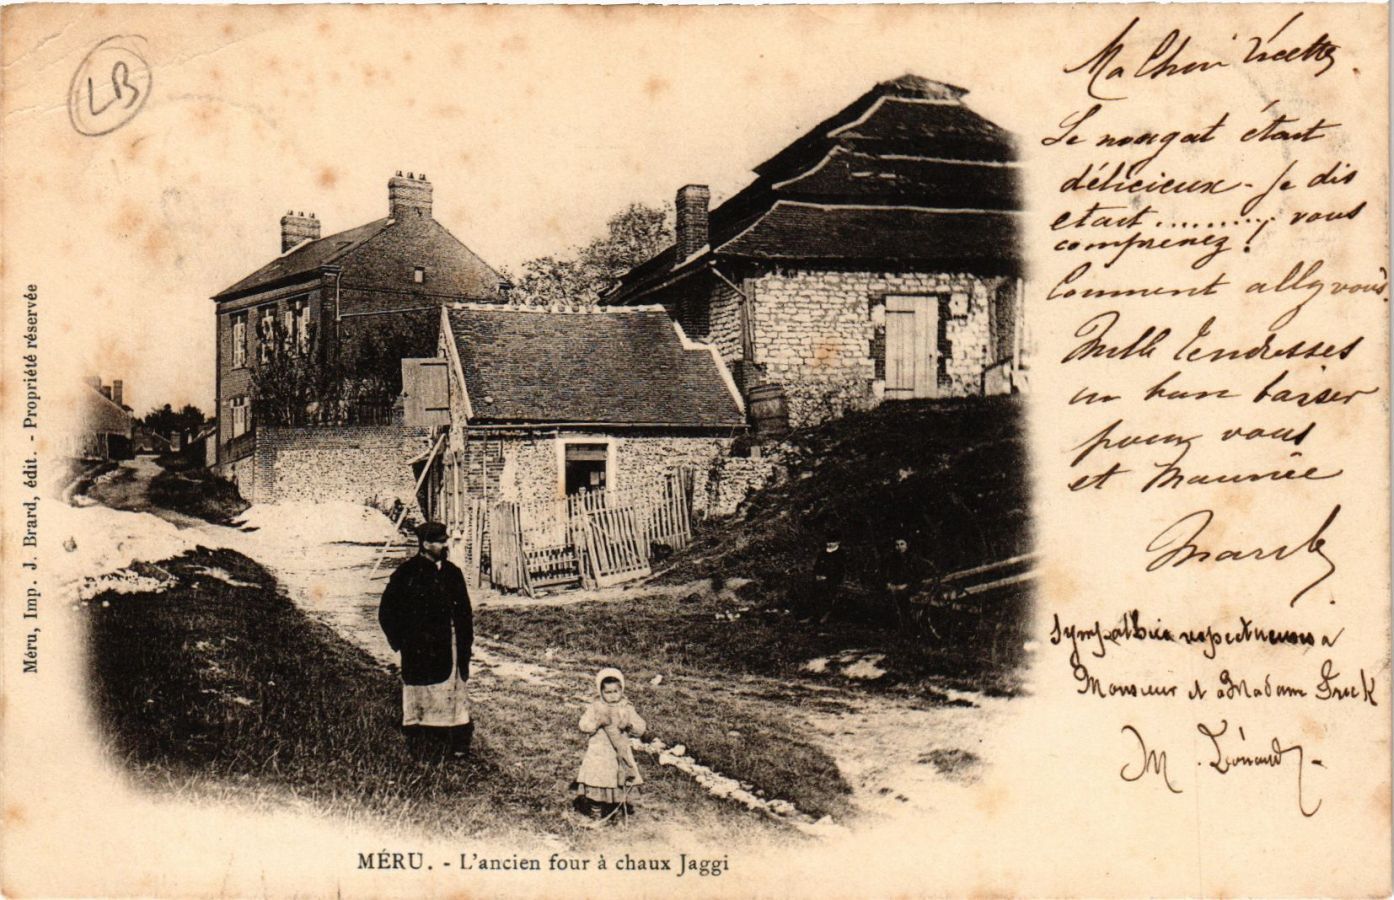 LB
Ma Chère
Le nougat était
délicieux - Je dis
etait .........., vous
comprenez !
Comment allez vous?
Mille Tendresses
un bon baiser
pour vous
et Maurice
Sympathie respectueuse a
Monsieur et à Madame
M. Lénaud
Méru, Imp. J. Brard, édit. - Propriété réservée
MÉRU. - L'ancien four à chaux Jaggi